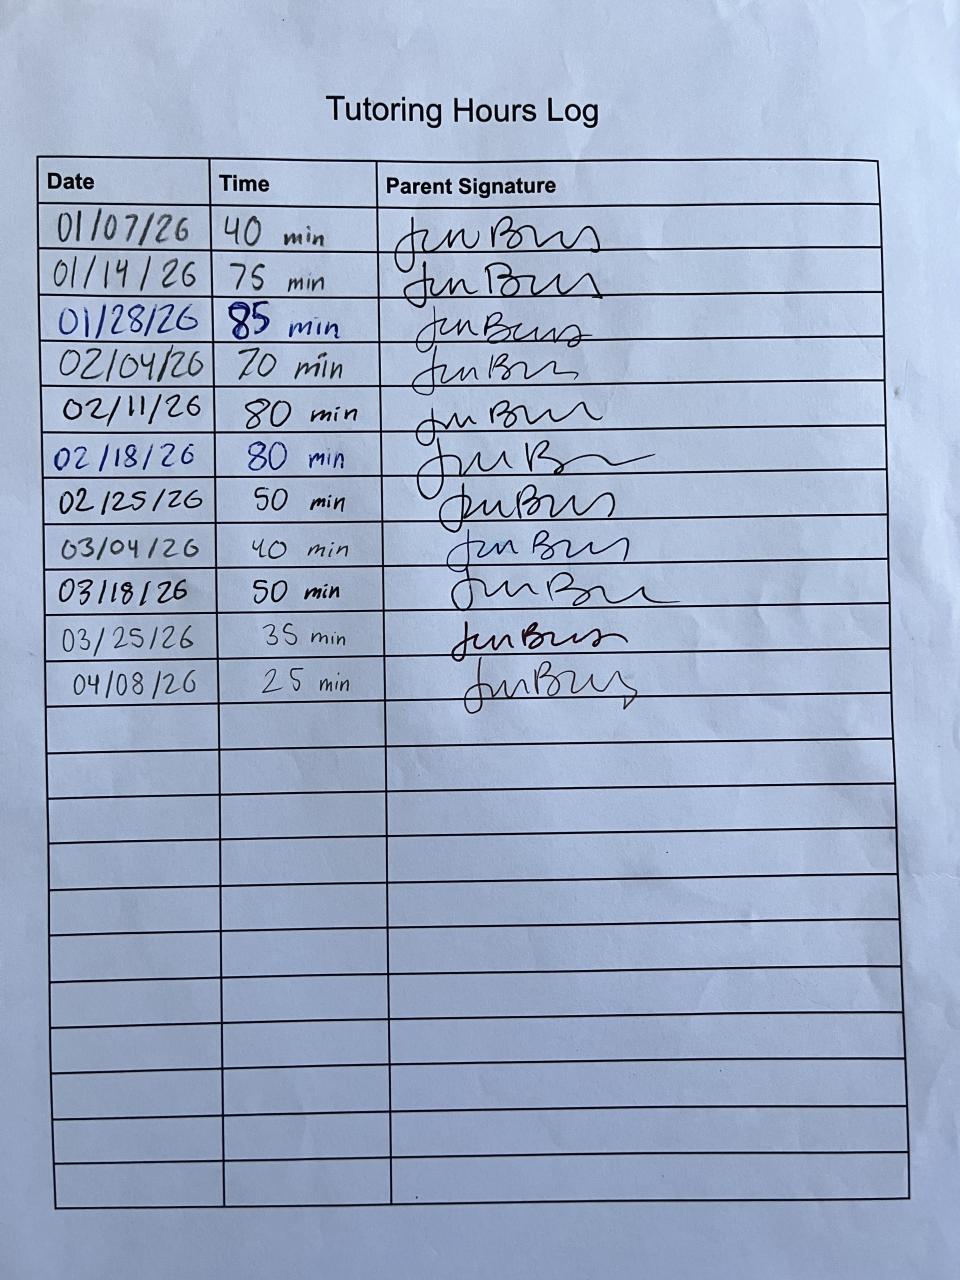 Tutoring Hours Log
Date Time Parent Signature
01/07/26 40 min Jen Burns
01/14/26 75 min Jen Burns
01/28/26 85 min Jen Burns
02/04/26 70 min Jen Burns
02/11/26 80 min Jen Burns
02/18/26 80 min Jen Burns
02/25/26 50 min Jen Burns
03/04/26 40 min Jen Burns
03/18/26 50 min Jen Burns
03/25/26 35 min Jen Burns
04/08/26 25 min Jen Burns